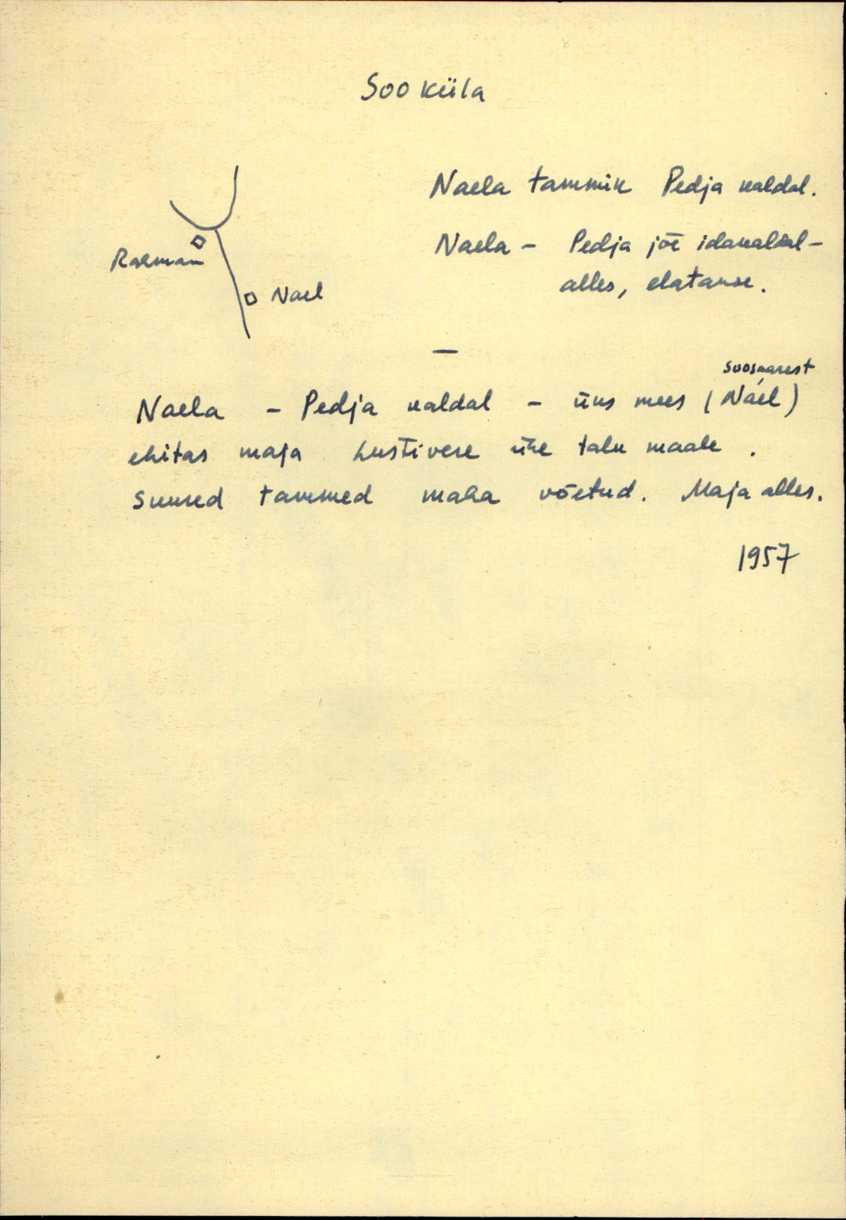 Soo küla
Naela tammik Pedja kaldal.
Naela - Pedja jõe idakaldal -
alles, elatakse.
Rahman
Nael
—
soosaarest
Naela - Pedja kaldal - üks mees (Nael)
ehitas maja Lustivere ühe talu maale.
Suured tammed maha võetud. Maja alles.
1957